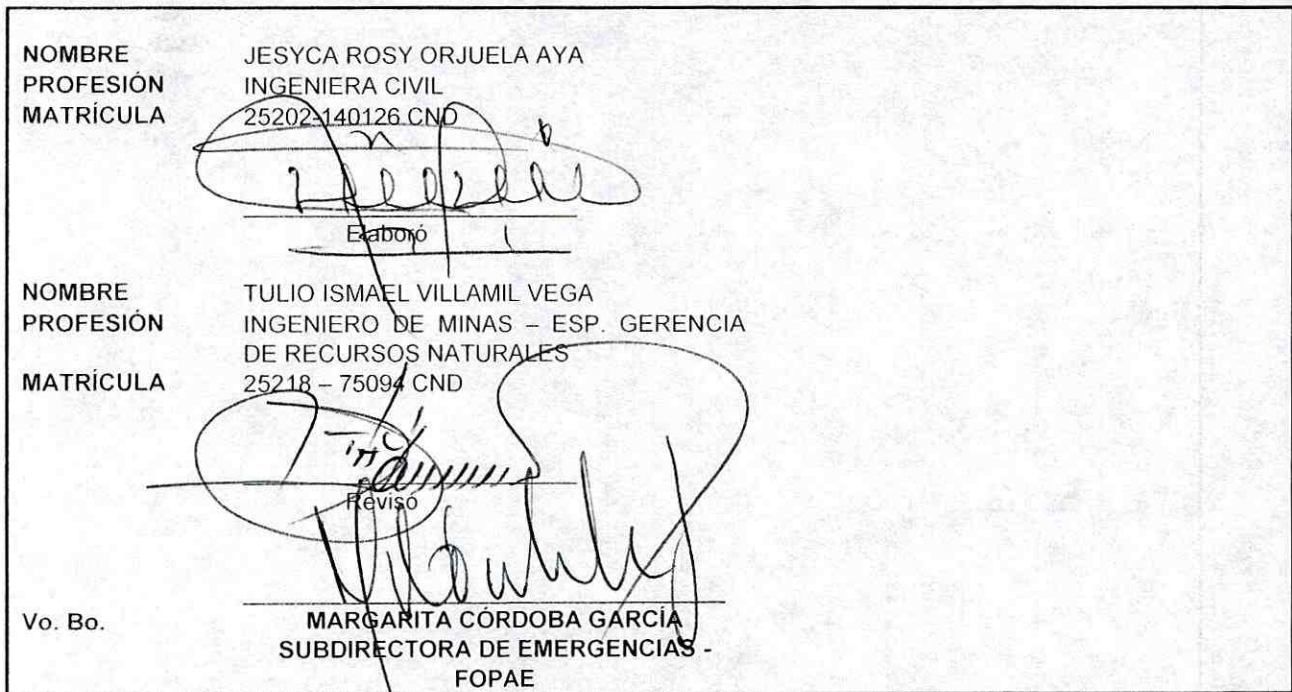 NOMBRE JESYCA ROSY ORJUELA AYA
PROFESIÓN INGENIERA CIVIL
MATRÍCULA 25202-140126 CND
Elaboró
NOMBRE TULIO ISMAEL VILLAMIL VEGA
PROFESIÓN INGENIERO DE MINAS – ESP. GERENCIA
DE RECURSOS NATURALES
MATRÍCULA 25218 – 75094 CND
Revisó
Vo. Bo. MARGARITA CÓRDOBA GARCÍA
SUBDIRECTORA DE EMERGENCIAS -
FOPAE